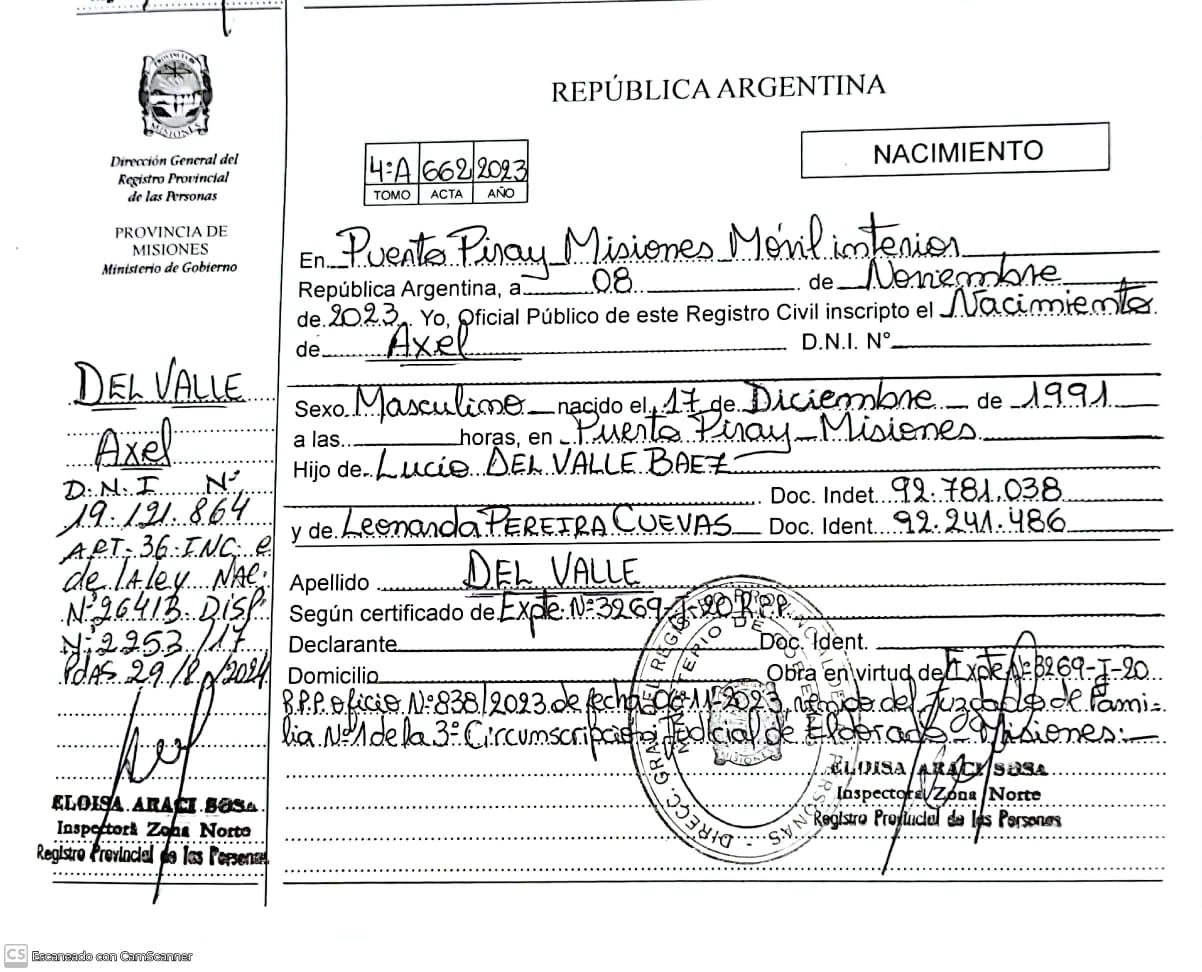 PROVINCIA DE
MISIONES
Dirección General del
Registro Provincial
de las Personas
PROVINCIA DE
MISIONES
Ministerio de Gobierno
DEL VALLE
Axel
D.N.I Nº
19.121.864
ART-36-INC. e
de la Ley Nac.
Nº26413 DISP.
Nº2253/17
Pdas 29/8/2024
ELOISA ARACI SOSA
Inspectora Zona Norte
Registro Provincial de las Personas
REPÚBLICA ARGENTINA
NACIMIENTO
4:A 662 2023
TOMO ACTA AÑO
En Puerto Piray Misiones Móvil interior
República Argentina, a 08 de Noviembre
de 2023 Yo, Oficial Público de este Registro Civil inscripto el Nacimiento
de Axel D.N.I. Nº
Sexo Masculino nacido el 17 de Diciembre de 1991
a las horas, en Puerto Piray - Misiones
Hijo de Lucio DEL VALLE BAEZ
Doc. Indet. 92.781.038
y de Leonarda PEREIRA CUEVAS Doc. Ident. 92.241.486
Apellido DEL VALLE
Según certificado de Expte Nº3269-I-20 R.P.P.
Declarante Doc. Ident.
Domicilio Obra en virtud de Expte Nº3269-I-20
R.P.P. oficio Nº838/2023 de fecha 06-11-2023, venido del Juzgado de Fami-
lia Nº1 de la 3º Circunscripción Judicial de Eldorado Misiones.
ELOISA ARACI SOSA
Inspectora Zona Norte
Registro Provincial de las Personas
CS Escaneado con CamScanner